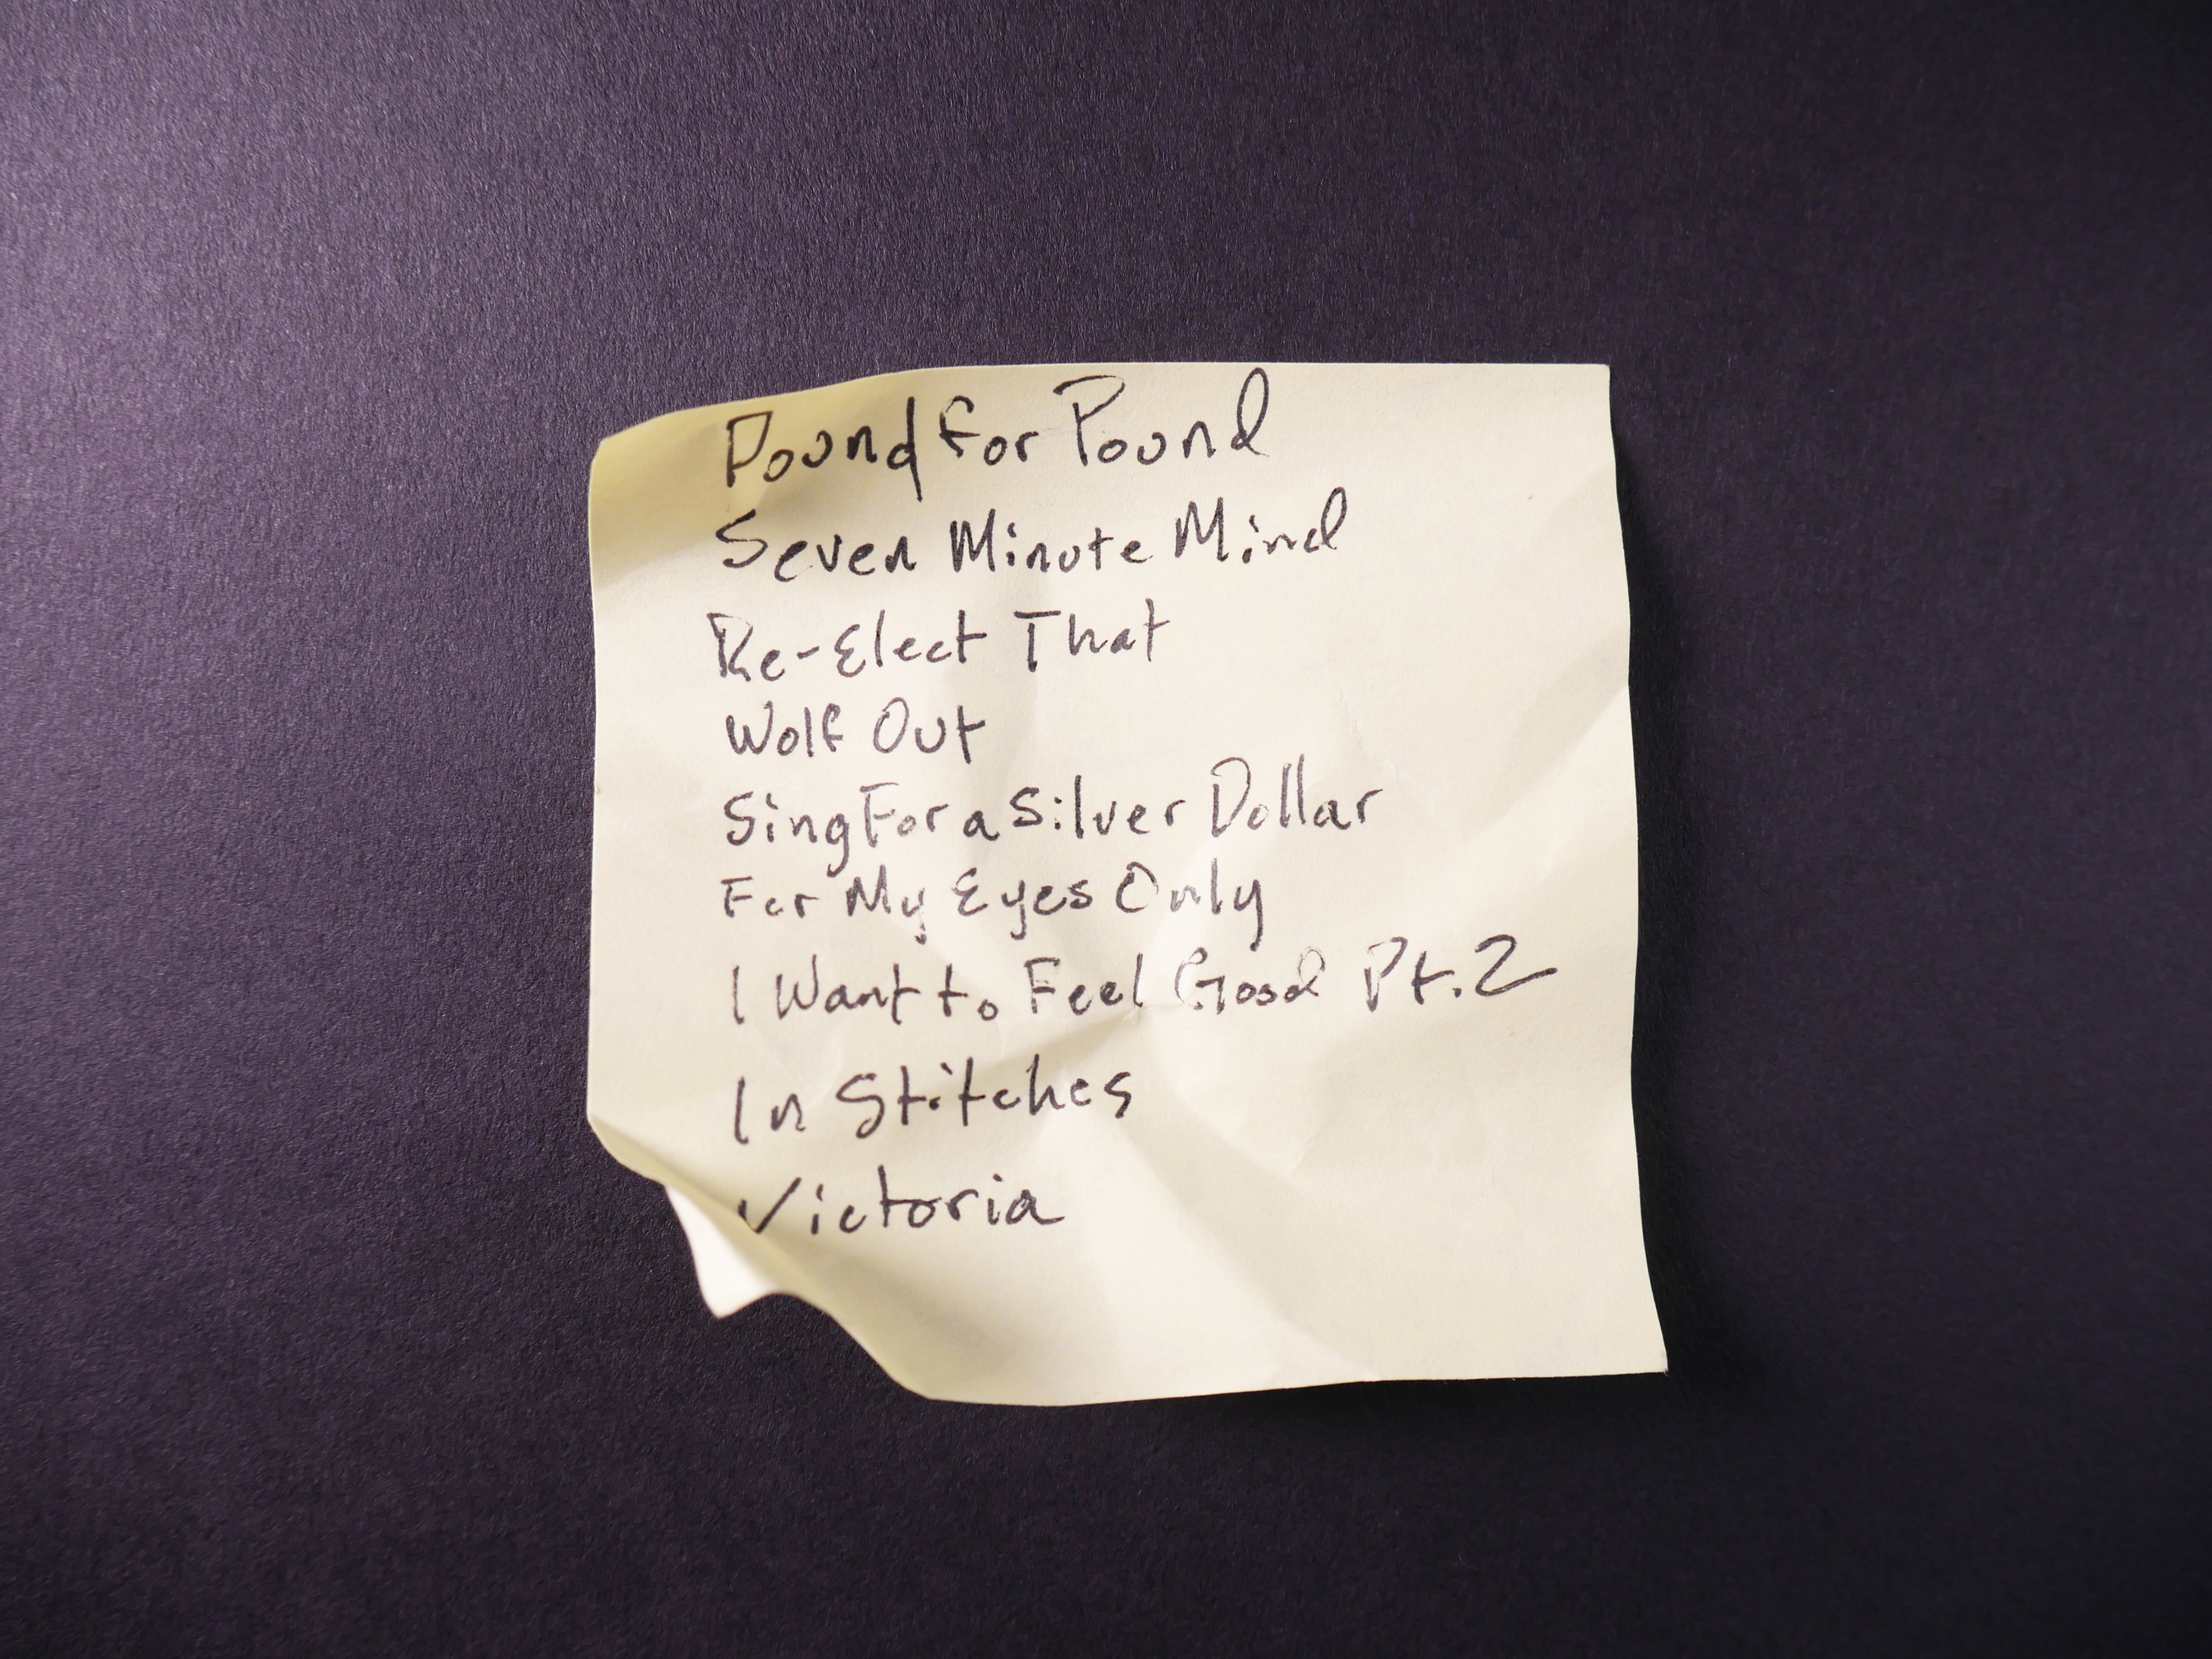 Pound for Pound
Seven Minute Mind
Re-Elect That
Wolf Out
Sing For a Silver Dollar
For My Eyes Only
I Want to Feel Good Pt.2
In Stitches
Victoria